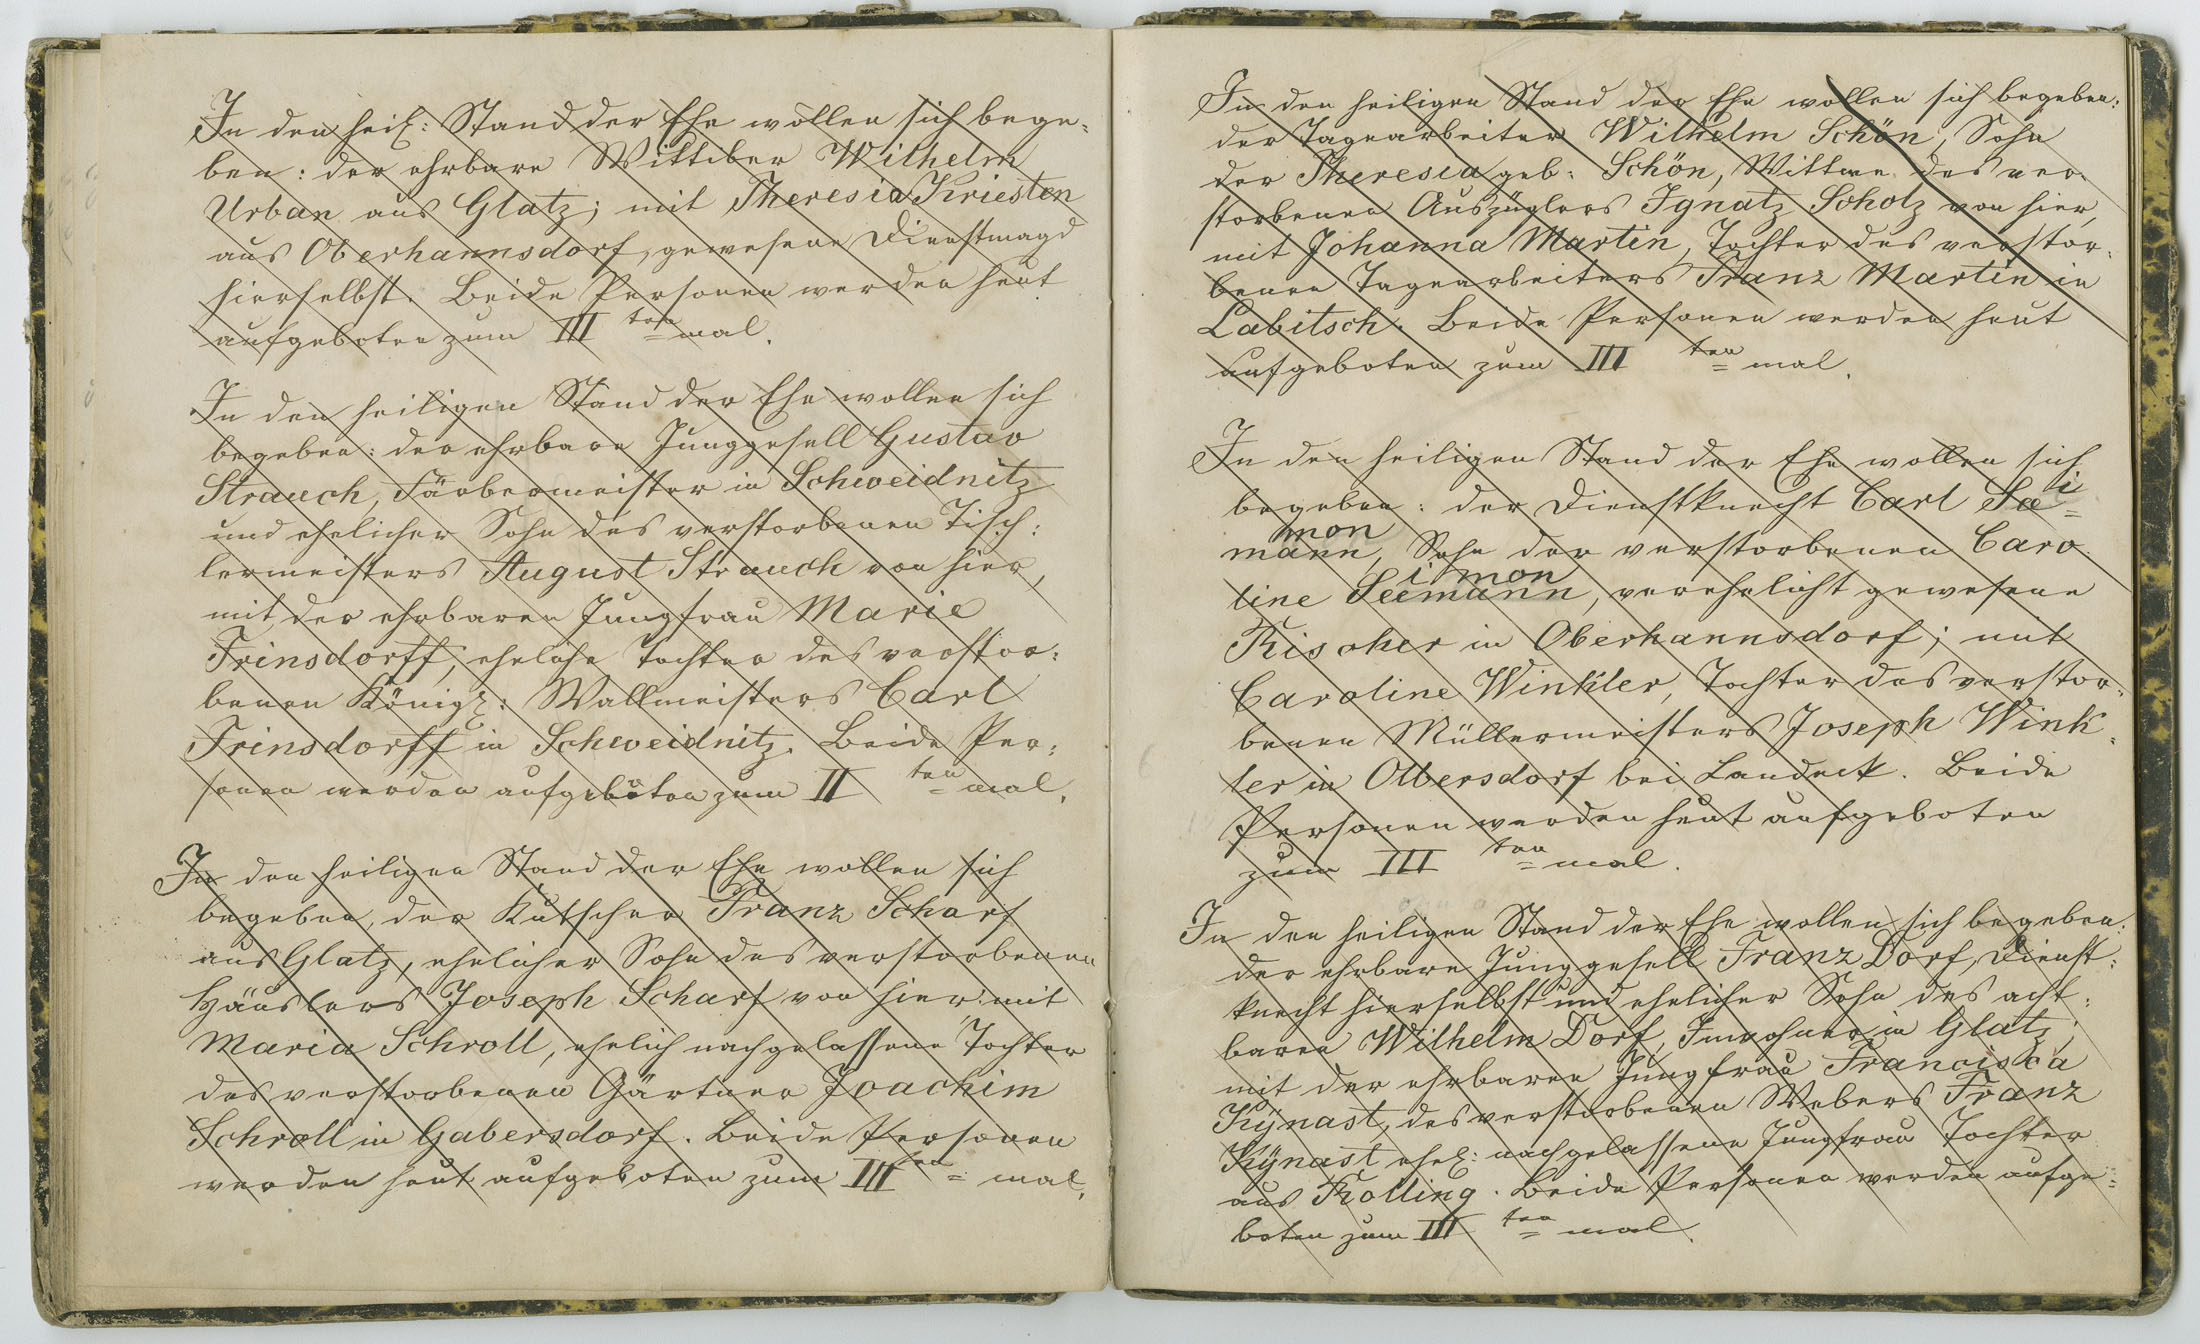 In den heil: Stand der Ehe wollen sich bege-
ben: der ehrbare Wittiber Wilhelm
Urban aus Glatz; mit Theresia Kriesten
aus Oberhannsdorf, gewesene Dienstmagd
hierselbst. Beide Personen werden heut
aufgeboten zum III ten mal.
In den heiligen Stand der Ehe wollen sich
begeben: der ehrbare Junggesell Gustav
Strauch, Färbermeister in Schweidnitz
und ehelicher Sohn des verstorbenen Tisch:
lermeisters August Strauch von hier,
mit der ehrbaren Jungfrau Marie
Frinsdorff, eheliche Tochter des verstor:
benen Königl: Wallmeisters Carl
Frinsdorff in Schweidnitz. Beide Per:
sonen werden aufgeboten zum II ten mal.
In den heiligen Stand der Ehe wollen sich
begeben, der Kutscher Franz Scharf
aus Glatz, ehelicher Sohn des verstorbenen
Häuslers Joseph Scharf von hier mit
Maria Schroll, ehelich nachgelassene Tochter
des verstorbenen Gärtner Joachim
Schroll in Gabersdorf. Beide Personen
werden heut aufgeboten zum III ten mal.
In den heiligen Stand der Ehe wollen sich begeben:
der Tagearbeiter Wilhelm Schön, Sohn
der Theresia geb: Schön, Wittwe des ver-
storbenen Auszüglers Ignatz Scholz von hier,
mit Johanna Martin, Tochter des verstor:
benen Tagearbeiters Franz Martin in
Labitsch. Beide Personen werden heut
aufgeboten zum III ten mal.
In den heiligen Stand der Ehe wollen sich
begeben: der Dienstknecht Carl See i
mon
mann, Sohn der verstorbenen Caro
i mon
line Seemann, verehelicht gewesene
Rischer in Oberhannsdorf; mit
Caroline Winkler, Tochter des verstor-
benen Müllermeisters Joseph Wink-
ler in Olbersdorf bei Landeck. Beide
Personen werden heut aufgeboten
zum III ten mal.
In den heiligen Stand der Ehe wollen sich begeben:
der ehrbare Junggesell Franz Dorf, Dienst:
knecht hierselbst und ehelicher Sohn des acht:
baren Wilhelm Dorf, Inwohner in Glatz;
mit der ehrbaren Jungfrau Franciska
Kÿnast, des verstorbenen Webers Franz
Kÿnast ehel: nachgelassene Jungfrau Tochter
aus Rolling. Beide Personen werden aufge-
boten zum III ten mal.